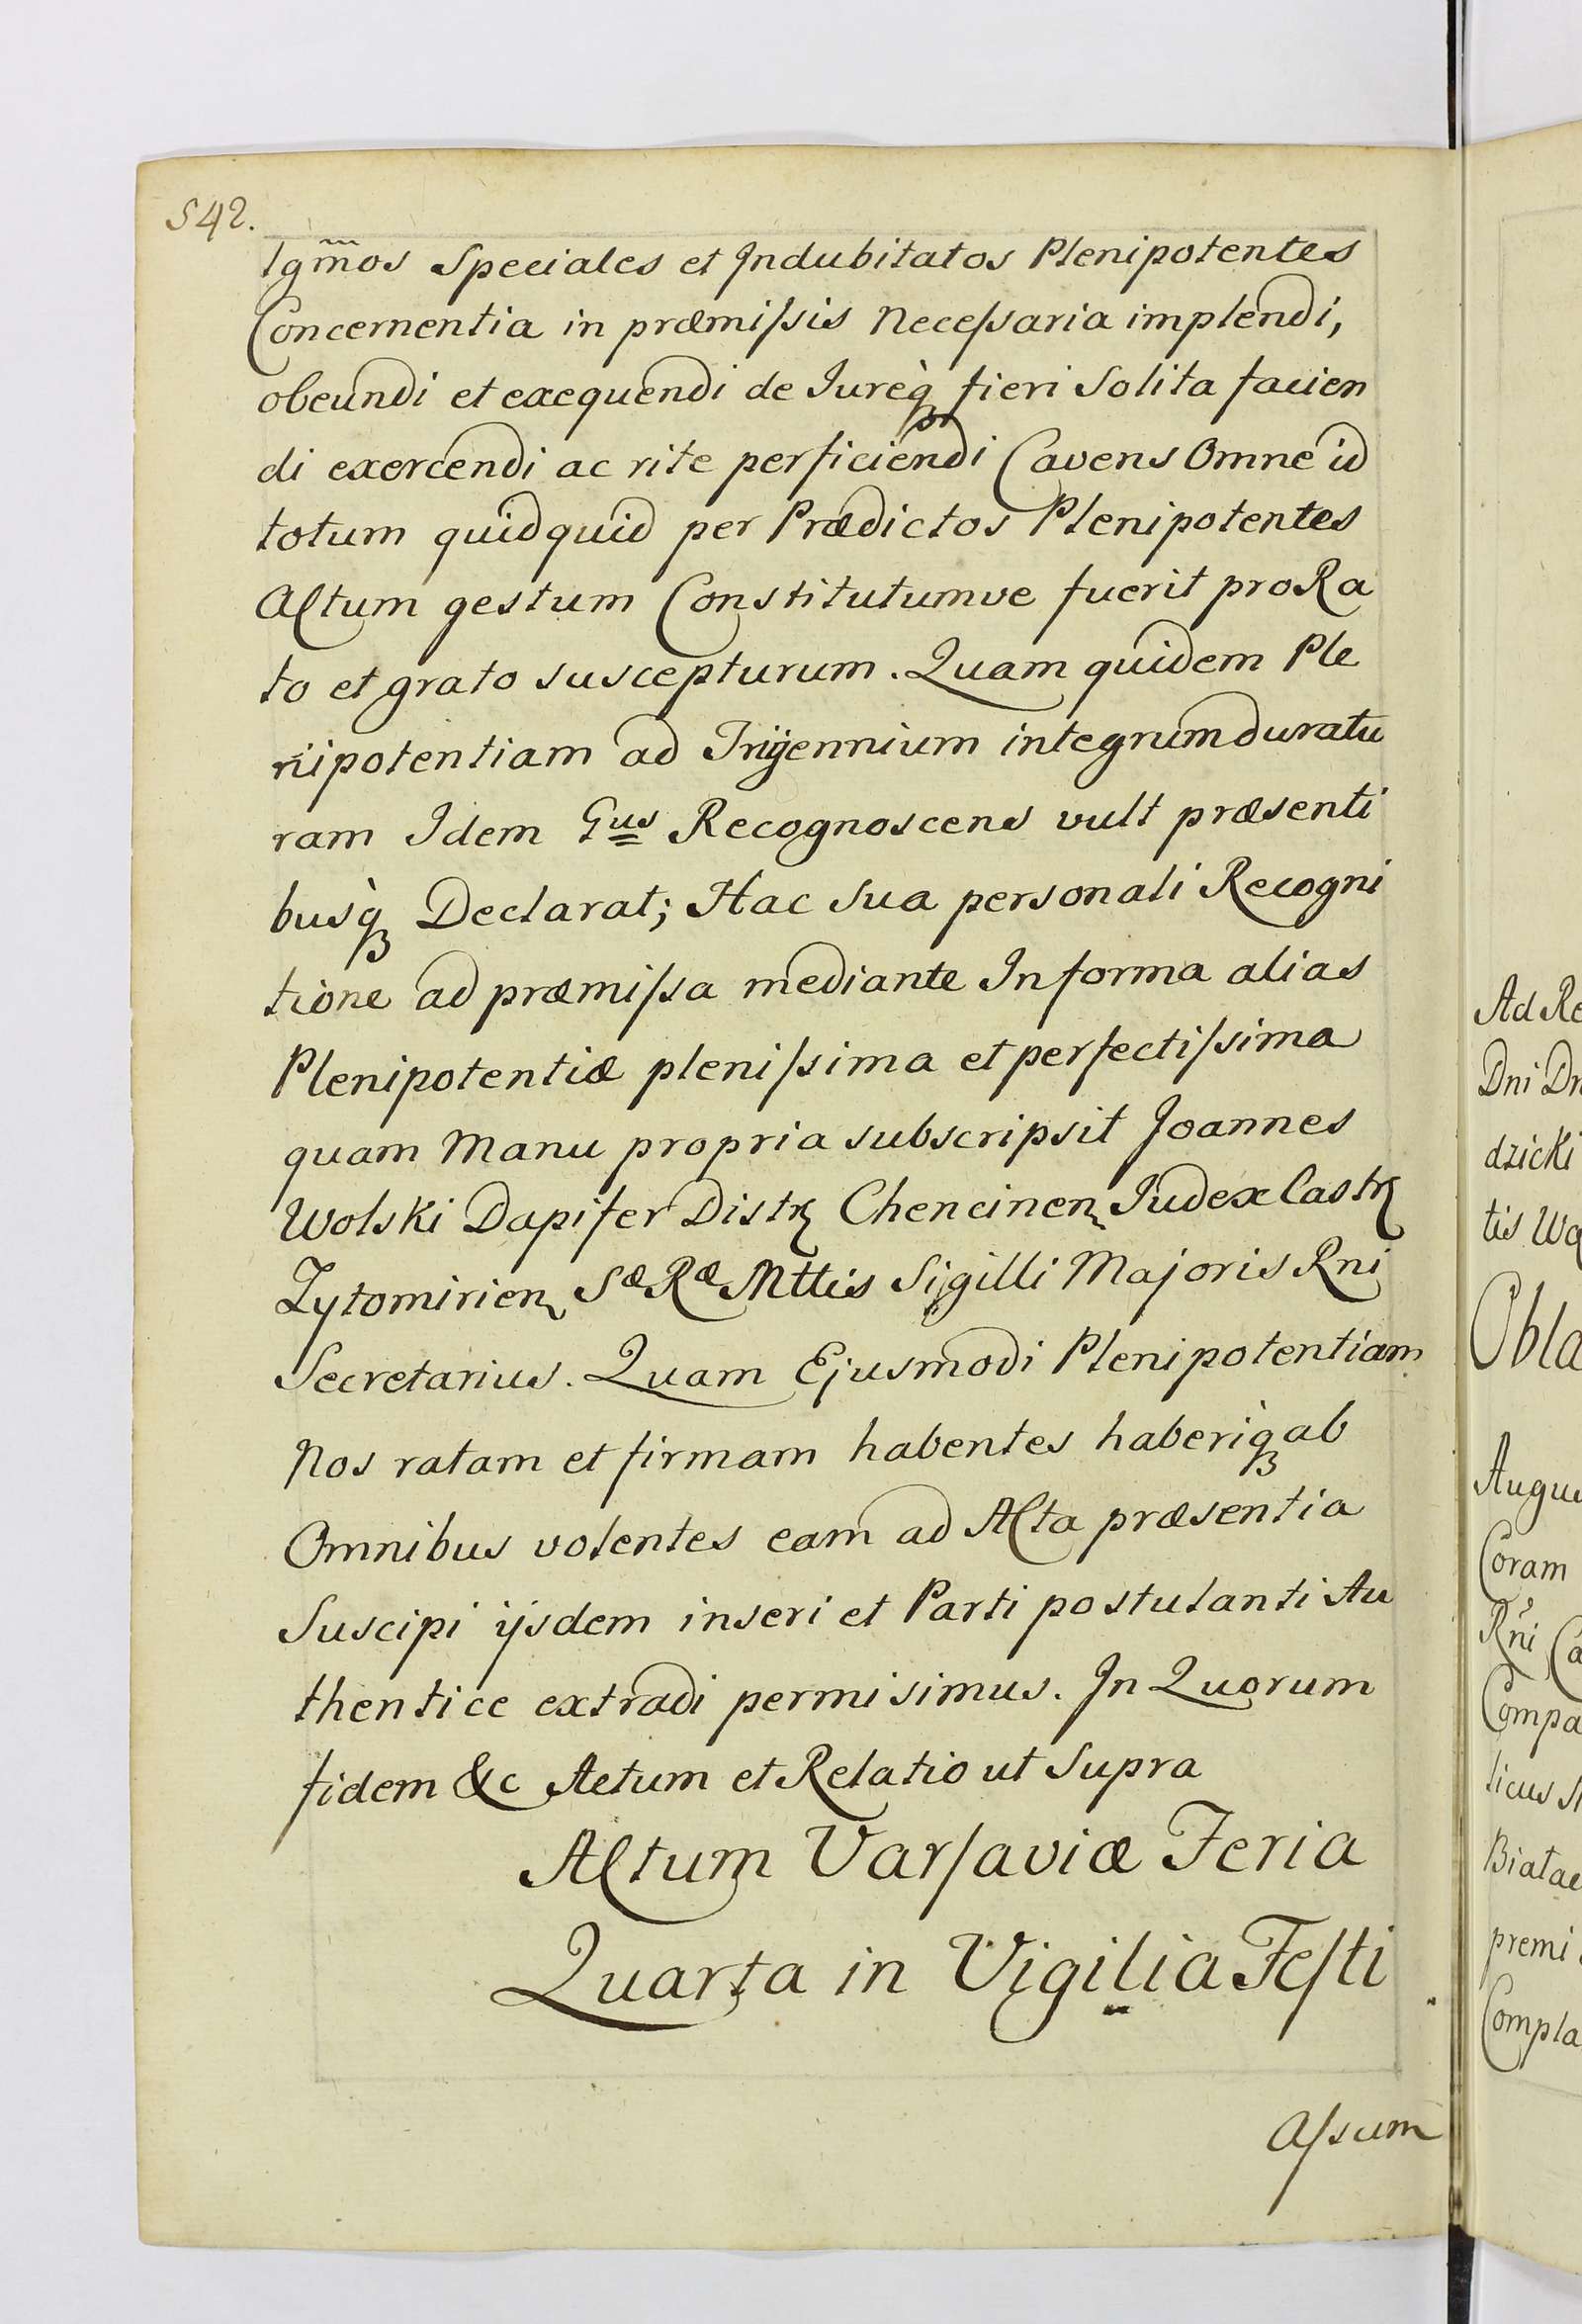 542.
lgm̃os Speciales et Indubitatos Plenipotentes
Concernentia in præmiſsis Neceſsaria implendi,
obeundi et exequendi de Iureq̀ꝫ fieri Solita facien
di exercendi ac rite perficiendi Cavens Omne id
totum quidquid per Prædictos Plenipotentes
Actum gestum Constitutumve fuerit pro Ra
to et grato suscepturum. Quam quidem Ple
nipotentiam ad Triyennium integrum duratu
ram Idem Gus Recognoscens vult præsenti
busq̀ꝫ Declarat; Hac Sua personali Recogni
tione ad præmiſsa mediante In forma alias
Plenipotentiæ pleniſsima et perfectiſsima
quam Manu propria subscripsit Joannes
Wolski Dapifer Distr Chencinen Iudex Castr
Zytomirien Sæ Ræ Mttis Sigilli Majoris Rni
Secretarius. Quam Ejusmodi Plenipotentiam
Nos ratam et firmam habentes haberiq̀ꝫ ab
Omnibus volentes eam ad Acta præsentia
Suscipi ijsdem inseri et Parti postulanti Au
thentice extradi permisimus. In Quorum
fidem &c Actum et Relatio ut Supra
Actum Varſaviæ Feria
Quarta in Vigilia Feſti
Aſsum
Ad Re
Dni Dn
dzicki
tis Wa
Obla
Augus
Coram
Rni Ca
Compa
licus
Biatae
premi
Compla